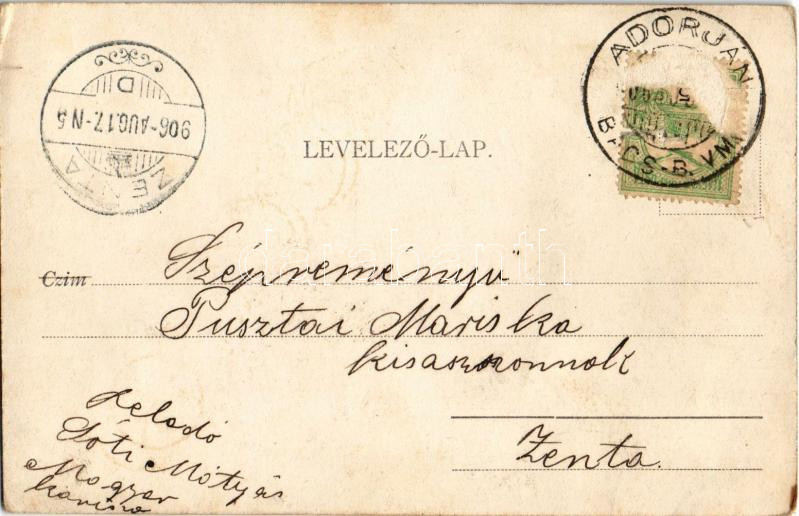 ADORJÁN
BÁCS-B. VM.
ZENTA
906-AUG.17.-N5
D
LEVELEZŐ-LAP.
Czim
Szépreményű
Pusztai Mariska
kisasszonnak
Zenta.
Feladó
Sóti Mátyás
Magyar
kanizsa
darabanth